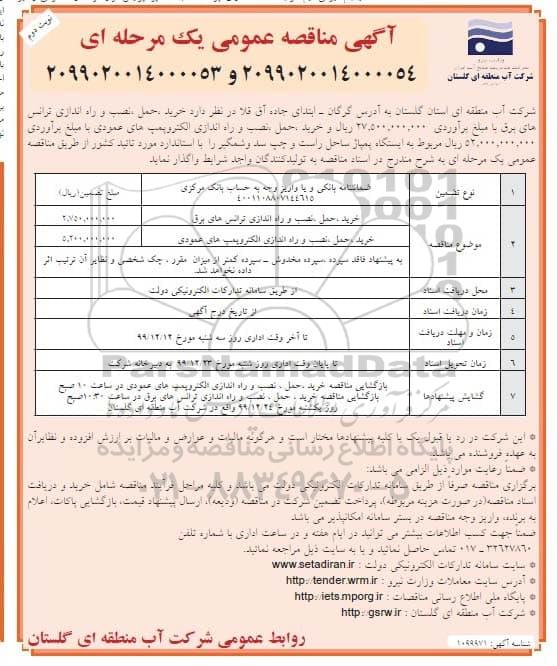 نوبت دوم
آگهی مناقصه عمومی یک مرحله ای
۲۰۹۹۰۲۰۰۱۴۰۰۰۰۵۴ و ۲۰۹۹۰۲۰۰۱۴۰۰۰۰۵۳
شرکت آب منطقه ای گلستان
شرکت آب منطقه ای استان گلستان به آدرس گرگان ـ ابتدای جاده آق قلا در نظر دارد خرید ،حمل ،نصب و راه اندازی ترانس
های برق با مبلغ برآوردی ۲۷,۵۰۰,۰۰۰,۰۰۰ ریال و خرید ،حمل ،نصب و راه اندازی الکتروپمپ های عمودی با مبلغ برآوردی
۵۲,۰۰۰,۰۰۰,۰۰۰ ریال مربوط به ایستگاه پمپاژ ساحل راست و چپ سد وشمگیر را با استاندارد مورد تائید کشور از طریق مناقصه
عمومی یک مرحله ای به شرح مندرج در اسناد مناقصه به تولیدکنندگان واجد شرایط واگذار نماید
۱ نوع تضمین ضمانتنامه بانکی و یا واریز وجه به حساب بانک مرکزی مبلغ تضمین(ریال)
۴۰۰۱۱۰۸۸۰۷۱۴۴۶۱۵
۲ موضوع مناقصه خرید ،حمل ،نصب و راه اندازی ترانس های برق ۲,۷۵۰,۰۰۰,۰۰۰
خرید ،حمل ،نصب و راه اندازی الکتروپمپ های عمودی ۵,۲۰۰,۰۰۰,۰۰۰
به پیشنهاد فاقد سپرده ،سپرده مخدوش ـ سپرده کمتر از میزان مقرر ، چک شخصی و نظایر آن ترتیب اثر
داده نخواهد شد.
۳ محل دریافت اسناد از طریق سامانه تدارکات الکترونیکی دولت
۴ زمان دریافت اسناد از تاریخ درج آگهی
۵ زمان و مهلت دریافت اسناد تا آخر وقت اداری روز سه شنبه مورخ ۹۹/۱۲/۱۲
۶ زمان تحویل اسناد تا پایان وقت اداری روز شنبه مورخ ۹۹/۱۲/۲۳ به دبیرخانه شرکت
۷ گشایش پیشنهادها بازگشایی مناقصه خرید ،حمل ، نصب و راه اندازی الکتروپمپ های عمودی در ساعت ۱۰ صبح
بازگشایی مناقصه خرید ، حمل ، نصب و راه اندازی ترانس های برق در ساعت ۱۰:۳۰صبح
روز یکشنبه مورخ ۹۹/۱۲/۲۴ واقع در شرکت آب منطقه ای گلستان
* این شرکت در رد یا قبول یک یا کلیه پیشنهادها مختار است و هرگونه مالیات و عوارض و مالیات بر ارزش افزوده و نظایرآن
به عهده فروشنده می باشد.
* ضمنا رعایت موارد ذیل الزامی می باشد:
برگزاری مناقصه صرفا از طریق سامانه تدارکات الکترونیکی دولت می باشد و کلیه مراحل فرآیند مناقصه شامل خرید و دریافت
اسناد مناقصه(در صورت هزینه مربوطه)، پرداخت تضمین شرکت در مناقصه (ودیعه)، ارسال پیشنهاد قیمت، بازگشایی پاکات، اعلام
به برنده، واریز وجه مناقصه در بستر سامانه امکانپذیر می باشد
ضمنا جهت کسب اطلاعات بیشتر می توانید در ایام هفته و در ساعت اداری با شماره تلفن
۳۲۶۲۷۸۶۰ - ۰۱۷ تماس حاصل نمائید و یا به سایت ذیل مراجعه نمائید.
* سایت سامانه تدارکات الکترونیکی دولت : www.setadiran.ir
* آدرس سایت معاملات وزارت نیرو : http://tender.wrm.ir
* پایگاه ملی اطلاع رسانی مناقصات : http://iets.mporg.ir
* شرکت آب منطقه ای گلستان : http://gsrw.ir
روابط عمومی شرکت آب منطقه ای گلستان
شناسه آگهی: ۱۰۹۹۹۷۱
ParsNamadData
پایگاه اطلاع رسانی مناقصه و مزایده